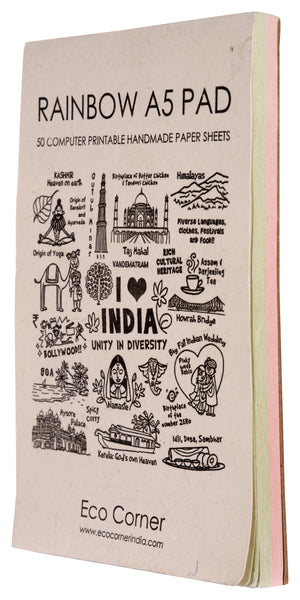 RAINBOW A5 PAD
50 COMPUTER PRINTABLE HANDMADE PAPER SHEETS
KASHMIR
Heaven on earth
Qutub Minar
Birthplace of Butter Chicken
/ Tandoori Chicken
Himalayas
Origin of
Sanskrit
and
Ayurveda
Diverse Languages,
Clothes, Festivals
and Food!!
Taj Mahal
Origin of Yoga
VANDEMATRAM
RICH
CULTURAL
HERITAGE
Assam &
Darjeeling
Tea
I
INDIA
Howrah Bridge
₹
BOLLYWOOD!!
UNITY IN DIVERSITY
Big Fat Indian Wedding
GOA
Namaste
Birthplace
of the
number ZERO
Mysore
Palace
Spicy
Curry
Idli, Dosa, Sambhar
Kerala: God's own Heaven
Eco Corner
www.ecocornerindia.com